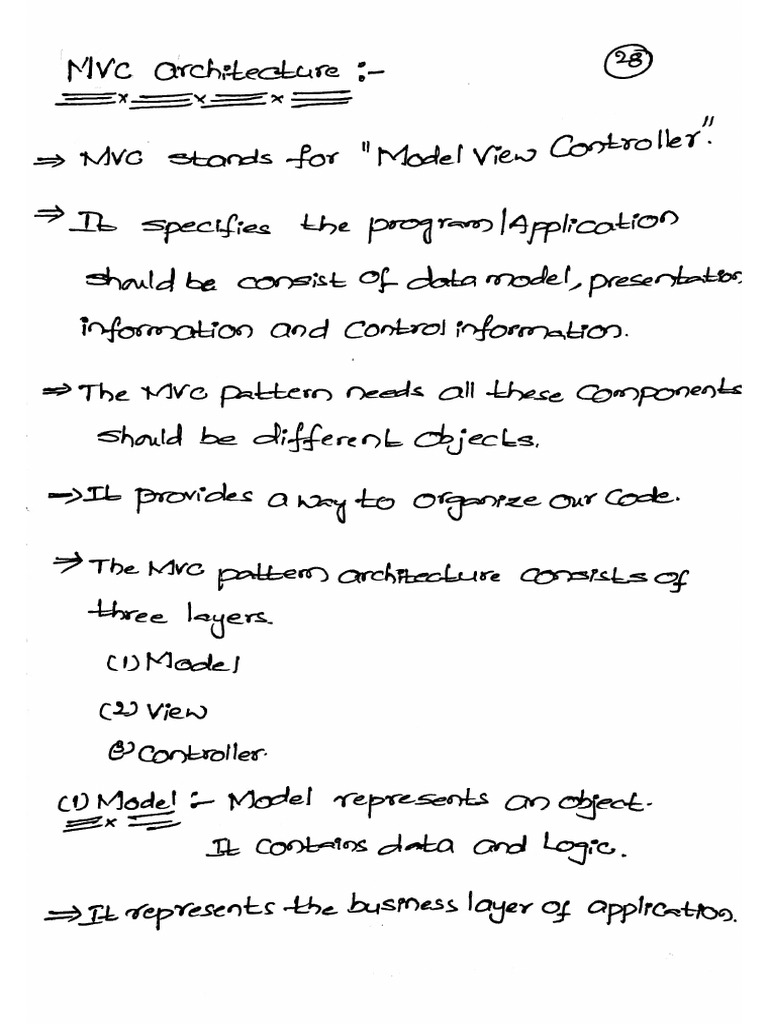 MVC architecture :-
28
⇒ MVC stands for "Model View Controller".
⇒ It specifies the program/Application
should be consist of data model, presentation
information and control information.
⇒ The MVC pattern needs all these components
should be different objects.
→ It provides a way to organize our code.
⇒ The MVC pattern architecture consists of
three layers.
(1) Model
(2) View
(3) Controller.
(1) Model :- Model represents an object.
It contains data and Logic.
⇒ It represents the business layer of application.